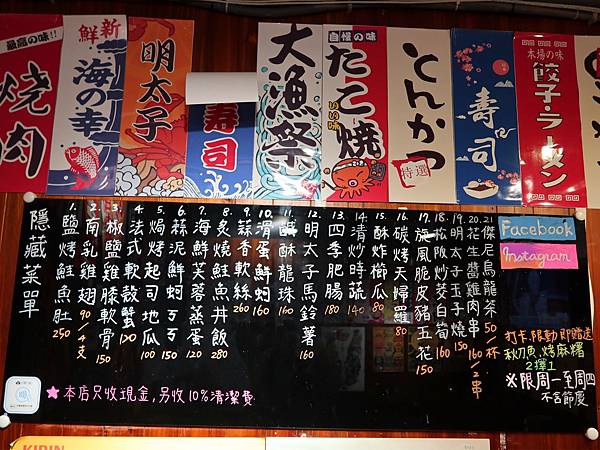 最高の味!!
焼肉
新鮮
海の幸
明太子
寿司
大漁祭
自慢の味
たこ焼
いい味
とんかつ
特選
寿司
本場の味
餃子・ラーメン
隱藏菜單
1.鹽烤鮭魚肚 250
2.南乳雞翅 90/4支
3.椒鹽雞膝軟骨 150
4.法式軟殼蟹 120
5.焗烤起司地瓜 100
6.蒜泥鮮蚵 150
7.海鮮芙蓉蒸蛋 120
8.炙燒鮭魚丼飯 280
9.蒜香軟絲 260
10.滑蛋鮮蚵 160
11.鹹酥龍珠 160
12.明太子馬鈴薯 160
13.四季肥腸 180
14.清炒時蔬 140
15.酥炸櫛瓜 80
16.碳烤天婦羅 80
17.旋風脆皮豬五花 150
18.松阪炒茭白筍 160
19.明太子玉子燒 150
20.花生醬雞肉串 160/2串
21.傑尼烏龍茶 50/杯
★本店只收現金,另收10%清潔費.
Facebook
Instagram
打卡.限動即贈送
秋刀魚.烤麻糬
2擇1
※限周一至周四
不含節慶
KIRIN